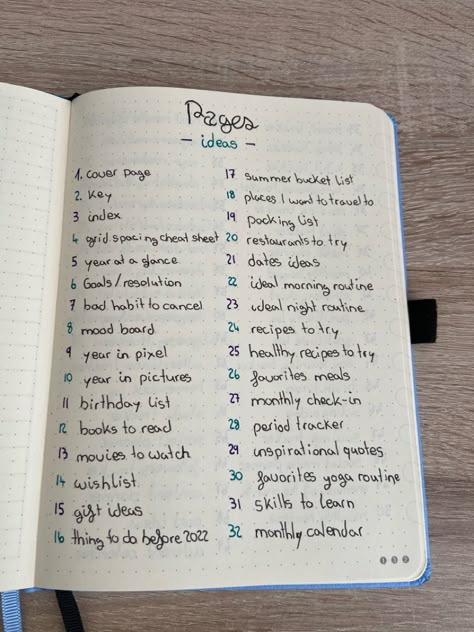 Pages
- ideas -
1. cover page
2. Key
3 index
4 grid spacing cheat sheet
5 year at a glance
6 Goals/resolution
7 bad habit to cancel
8 mood board
9 year in pixel
10 year in pictures
11 birthday list
12 books to read
13 movies to watch
14 wishlist
15 gift ideas
16 thing to do before 2022
17 summer bucket list
18 places I want to travel to
19 packing list
20 restaurants to try
21 dates ideas
22 ideal morning routine
23 ideal night routine
24 recipes to try
25 healthy recipes to try
26 favorites meals
27 monthly check-in
28 period tracker
29 inspirational quotes
30 favorites yoga routine
31 skills to learn
32 monthly calendar
132